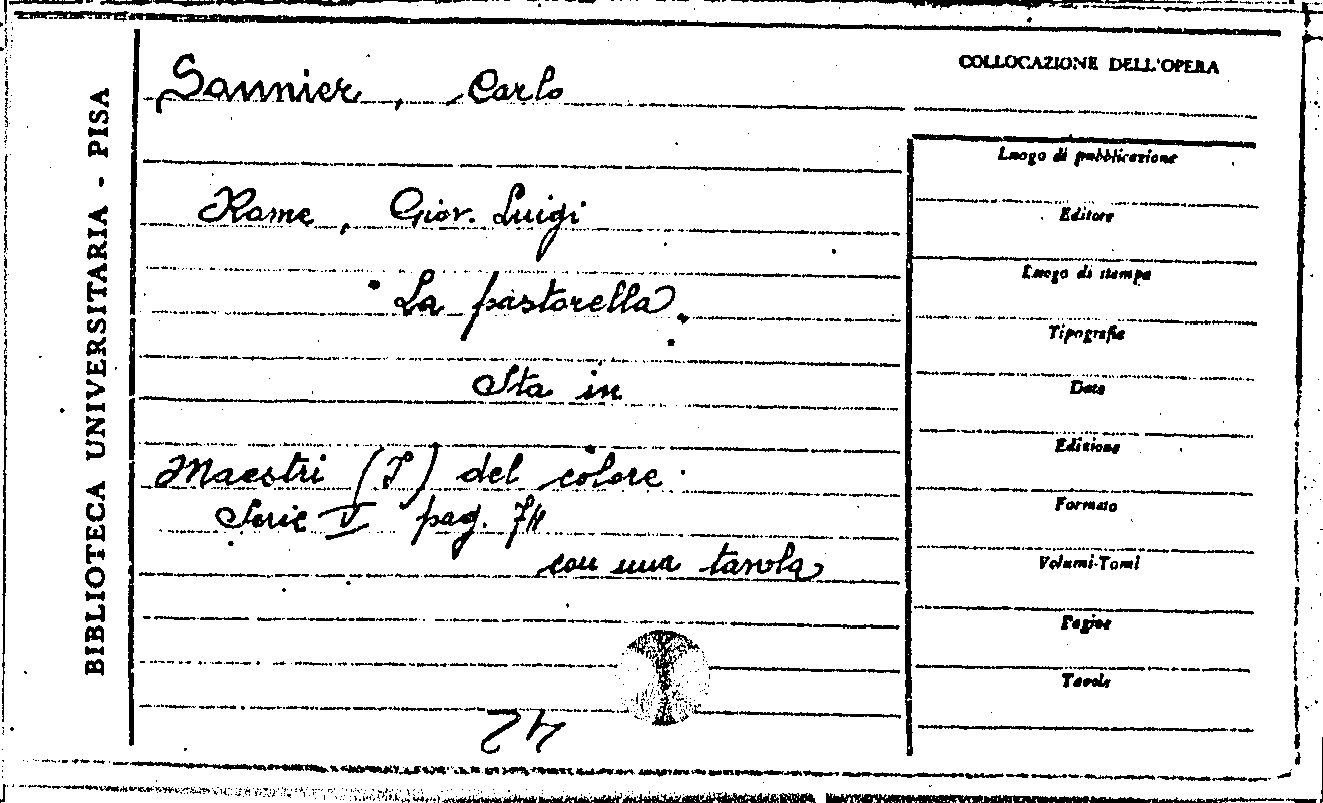 BIBLIOTECA UNIVERSITARIA - PISA
Saunier, Carlo
Rame, Giov. Luigi
"La pastorella"
Sta in
Maestri (I) del colore.
Serie V pag. 74
con una tavola
42
COLLOCAZIONE DELL'OPERA
Luogo di pubblicazione
Editore
Luogo di stampa
Tipografia
Data
Edizione
Formato
Volumi-Tomi
Pagine
Tavole